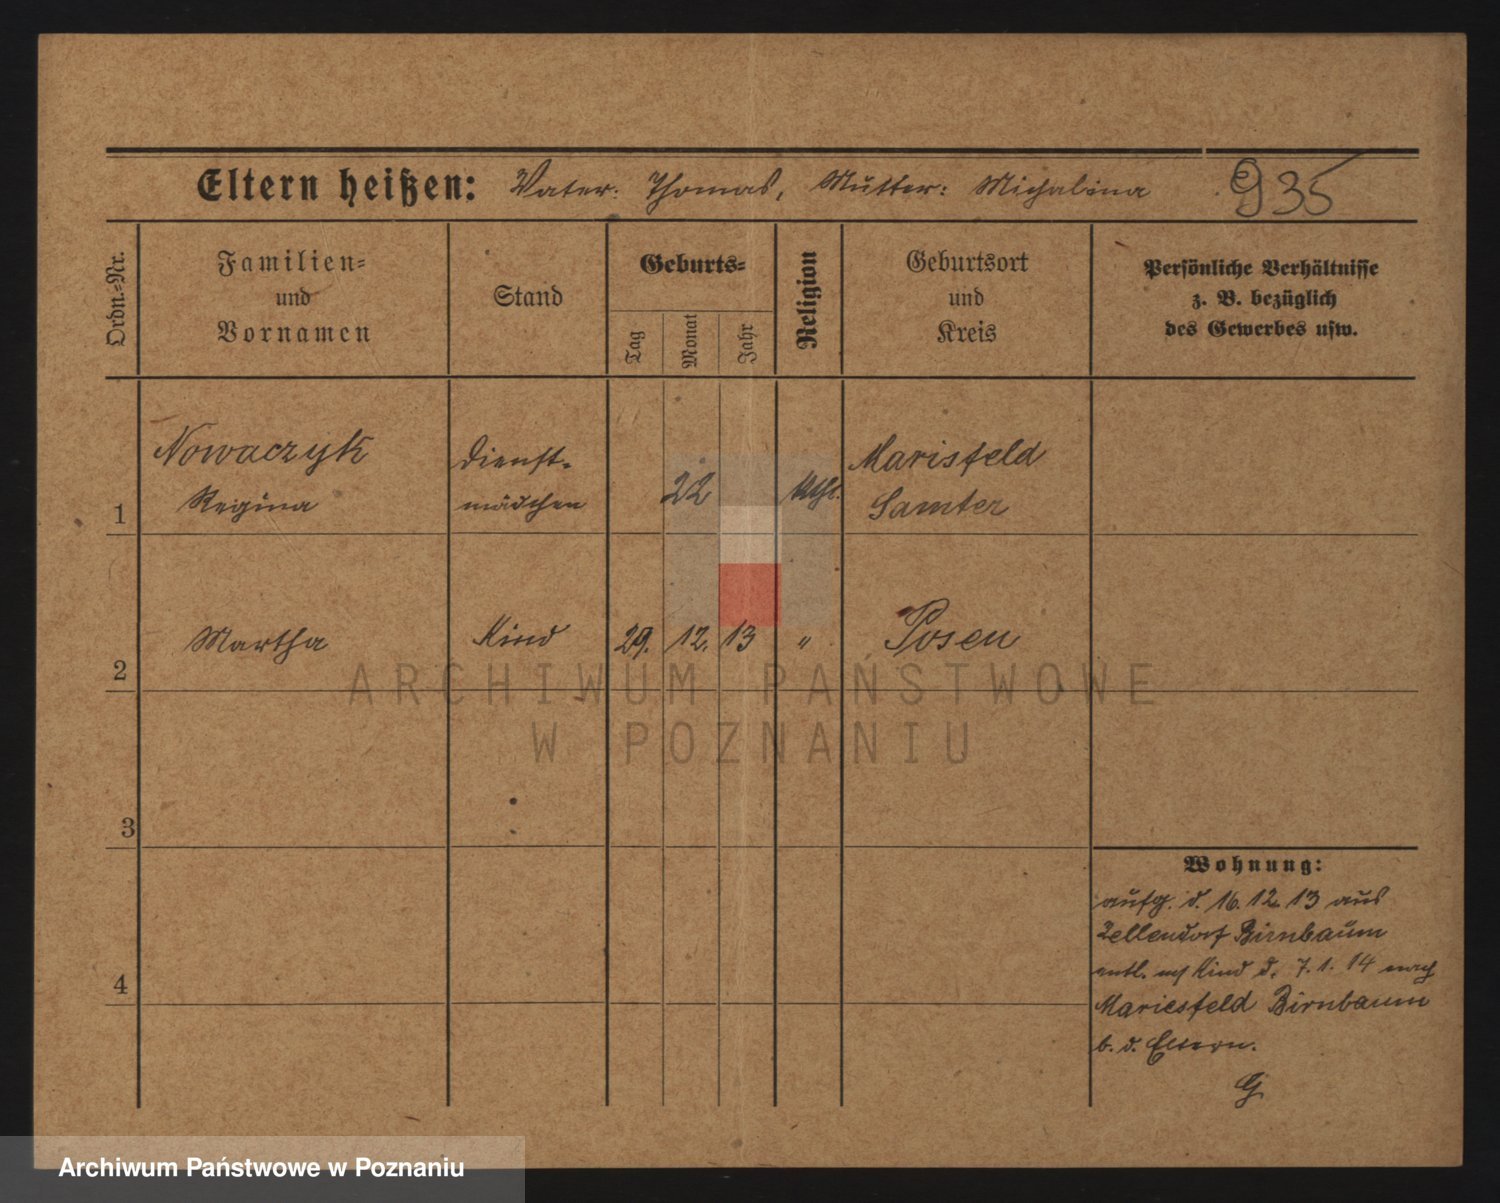 Eltern heißen: Vater: Thomas, Mutter: Michalina 935
Ordn.-Nr.
Familien-
und
Vornamen
Stand
Geburts-
Tag
Monat
Jahr
Religion
Geburtsort
und
Kreis
Persönliche Verhältnisse
z. B. bezüglich
des Gewerbes usw.
Nowaczyk Dienst- Marisfeld
1 Regina mädchen 22 kath. Samter
2 Martha Kind 29. 12. 13 " Posen
3
4
Wohnung:
aufg. d. 16. 12. 13 aus
Zellendorf Birnbaum
entl. Kind d. 7. 1. 14 nach
Mariesfeld Birnbaum
b. d. Eltern.
ARCHIWUM PAŃSTWOWE
W POZNANIU
Archiwum Państwowe w Poznaniu